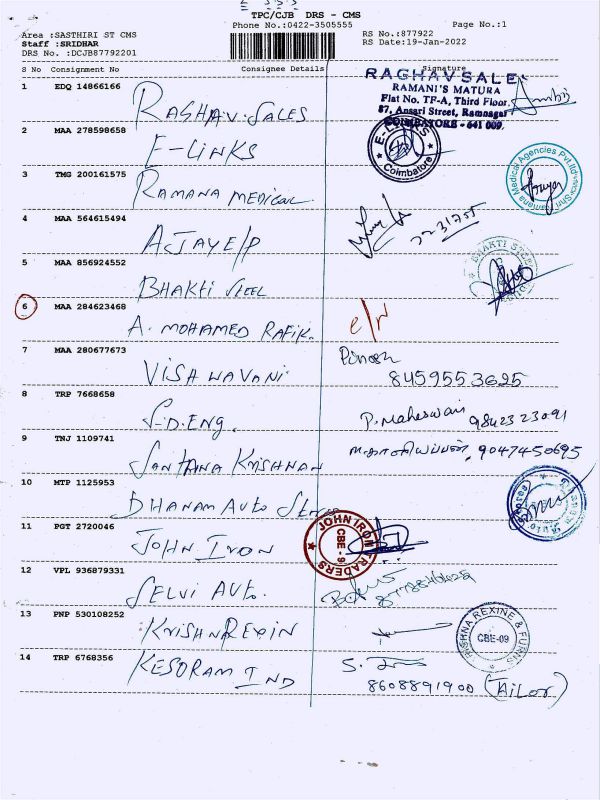 TPC/CJB DRS - CMS
Phone No.:0422-3505555 Page No.:1
Area :SASTHIRI ST CMS RS No.:877922
Staff :SRIDHAR RS Date:19-Jan-2022
DRS No. :DCJB87792201
S No Consignment No Consignee Details Signature
RAGHAV SALE
RAMANI'S MATURA
Flat No. TF-A, Third Floor
87, Ansari Street, Ramnagar
COIMBATORE - 641 009.
1 EDQ 14866166 RAGHAV. SALES
2 MAA 278598658 E-LINKS
E-LINKS Coimbatore
3 TMG 200161575 RAMANA MEDICAL
Medical Agencies Pvt.ltd
4 MAA 564615494 AJAY E/P
5 MAA 856924552 BHAKTI STEEL
BHAKTI STEEL
6 MAA 284623468 A. MOHAMED RAFIK.
7 MAA 280677673 VISHWAVANI
8459553625
8 TRP 7668658 S.D.ENG. P. Maheswari 9842323091
9 TNJ 1109741 SANTHANA KRISHNAN 9047450695
10 MTP 1125953 DHANAM AUTO
11 PGT 2720046 JOHN IRON
JOHN IRON TRADERS CBE - 9
12 VPL 936879331 SELVI AUTO.
13 PNP 530108252 KRISHNA REXIN
KRISHNA REXINE & FURNIS CBE-09
14 TRP 6768356 KESORAM IND
8608891900 (TAILOR)